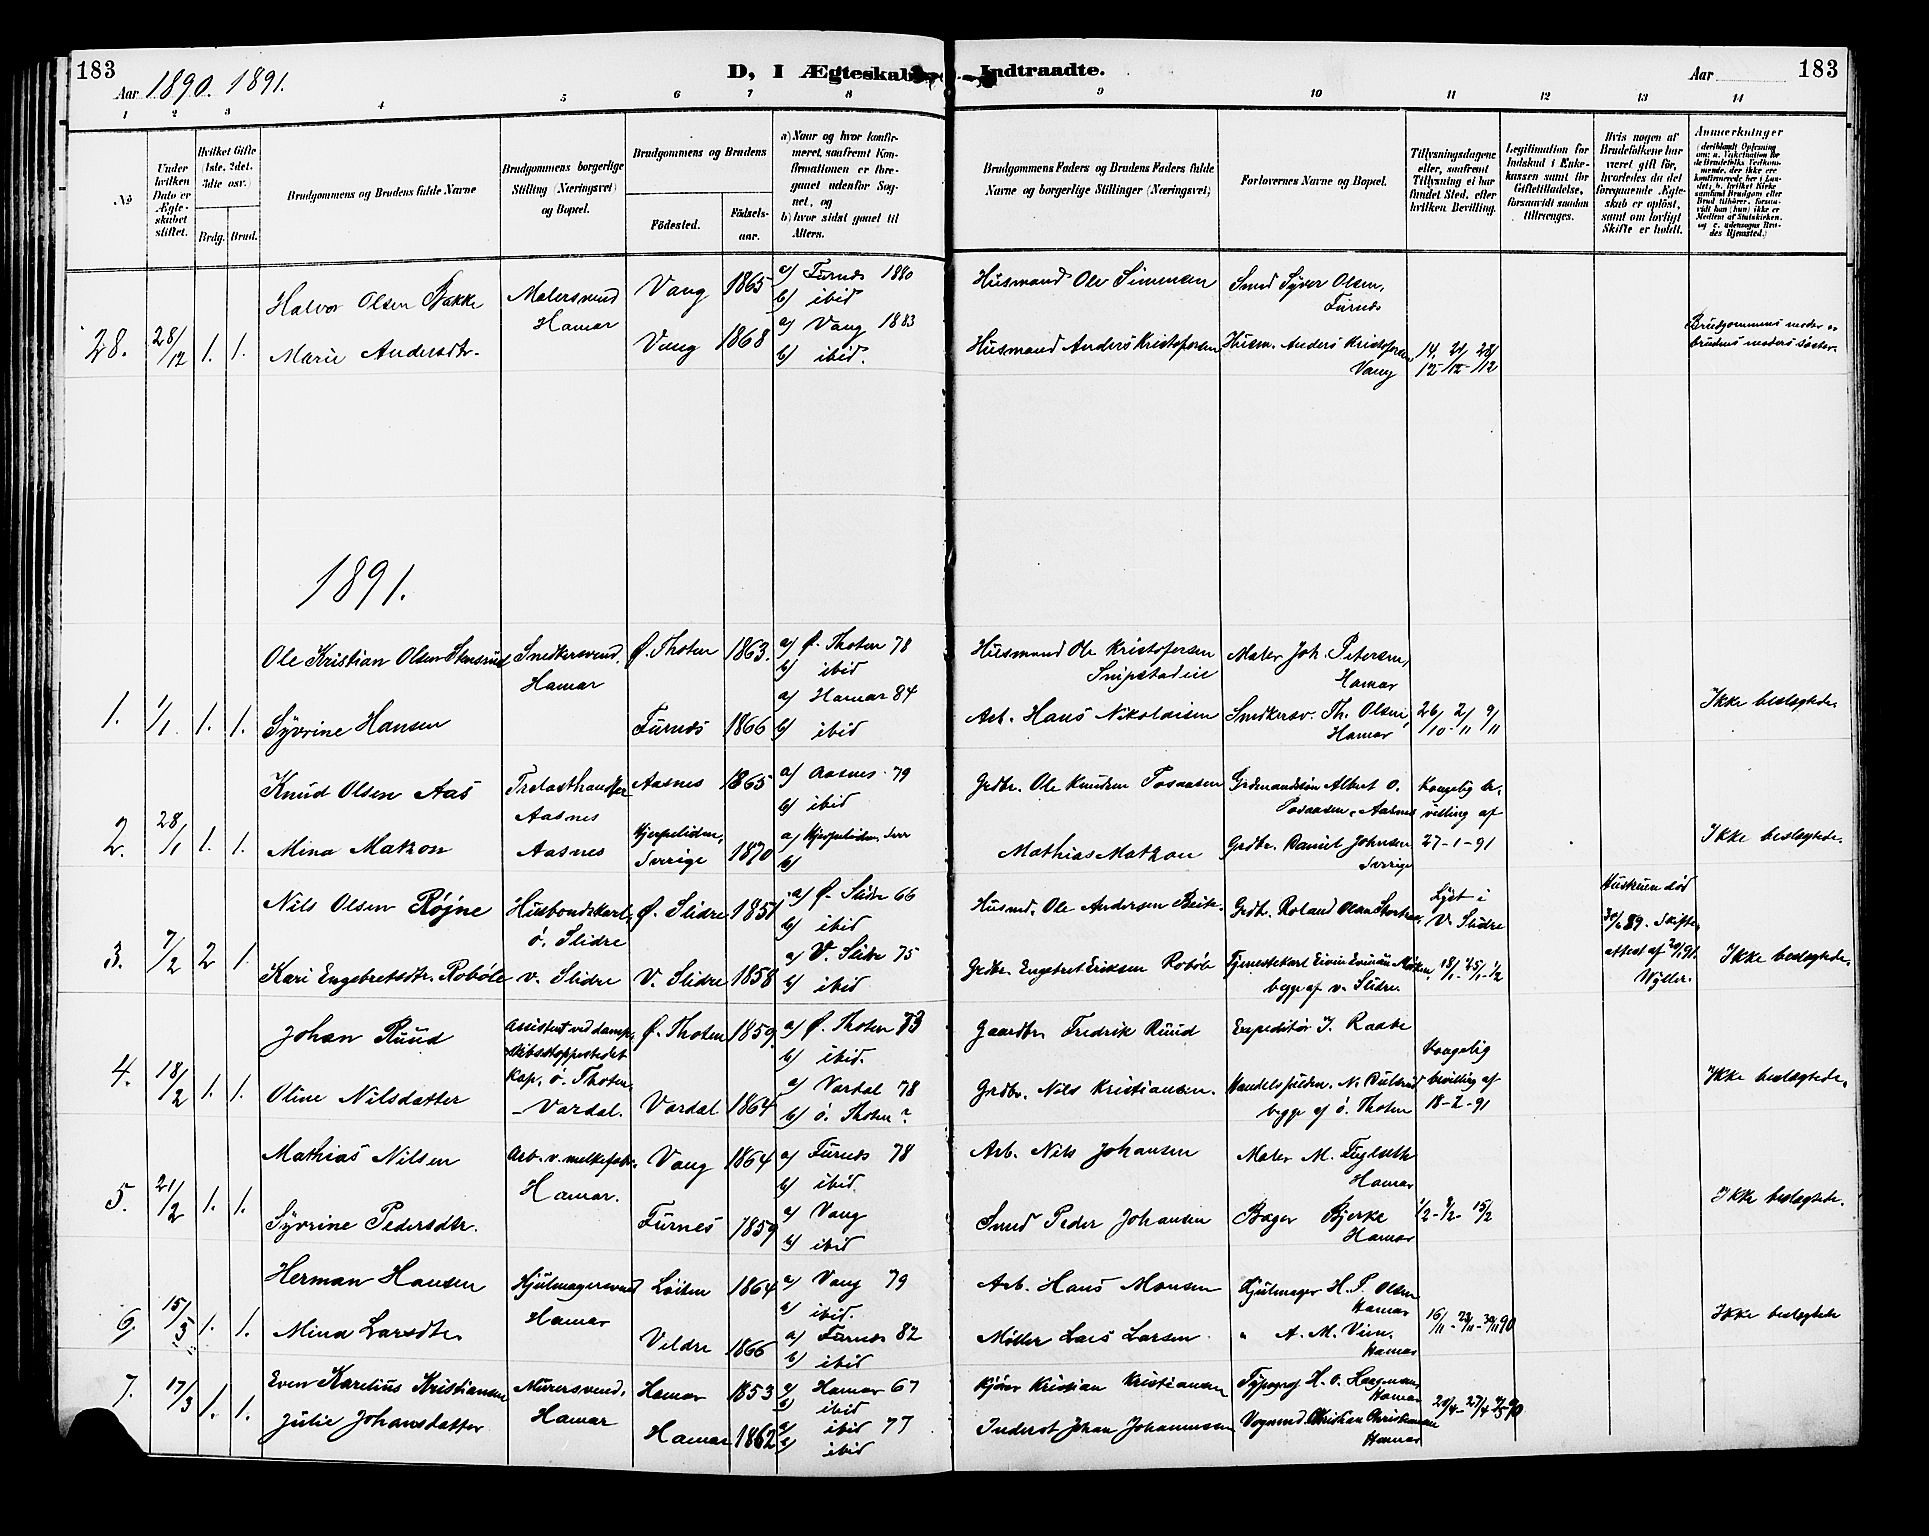 183
Aar 1890. 1891.
D, I Ægteskab Indtraadte.
Aar
183
1 2 3 4 5 6 7 8 9 10 11 12 13 14
No
Under hvilken Dato er Ægteskabet stiftet.
Hvilket Gifte (1ste, 2det, 3die osv.)
Brdg. Brud.
Brudgommens og Brudens fulde Navne
Brudgommens borgerlige Stilling (Næringsvei) og Bopæl.
Brudgommens og Brudens
Födested.
Födselsaar.
a) Naar og hvor konfirmeret, saafremt Konfirmationen er foregaaet udenfor Sognet, og
b) hvor sidst gaaet til Alters.
Brudgommens Faders og Brudens Faders fulde Navne og borgerlige Stillinger (Næringsvei)
Forlovernes Navne og Bopæl.
Tillysningsdagene eller, saafremt Tillysning ei har fundet Sted, efter hvilken Bevilling.
Legitimation for Indskud i Enkekassen samt for Giftetilladelse, forsaavidt saadan tiltrænges.
Hvis nogen af Brudefolkene har været gift før, hvorledes da det foregaaende Ægteskab er oplöst, samt om lovligt Skifte er holdt.
Anmerkninger
28. 28/12 1. 1.
Halvor Olsen Bakke
Malersvend Hamar
Vang 1865
a) Furnes 1880
b) ibid
Husmand Ole Simensen
Smed Syver Olsen, Furnes
Marie Andersdtr.
Vang 1868
a) Vang 1883
b) ibid.
Husmand Anders Kristofersen
Husm. Anders Kristofersen Vang
14/12 - 21/12 - 28/12
Brudgommens moder er brudens moders søster.
1891.
1. 1/1 1. 1.
Ole Kristian Olsen Stensrud
Snedkersvend. Hamar
Ø. Thoten 1863.
a) Ø. Thoten 78
b) ibid
Husmand Ole Kristofersen
Maler Joh. Petersen, Hamar
Syvrine Hansen
Furnes 1866
a) Hamar 84
b) ibid
Arb. Hans Nikolaisen
Snedkersv. Th. Olsen, Hamar
26/10 - 2/11 9/11
Ikke beslægtede
2. 28/1 1. 1.
Knud Olsen Aas
Trælasthandler Aasnes
Aasnes 1865
a) Aasnes 79
b) ibid
Grdbr. Ole Knudsen
Grdmandsøn Albert O.
Aasnes
Kongelig bevilling af 27-1-91
Mina Matzon
Aasnes
Sverige 1870
a)
b)
Mathias Matzon
Grdbr. Daniel Johnsen Sverige
Ikke beslægtede.
3. 7/2 2 1.
Nils Olsen Røjne
Husbondskarl, ø. Slidre
Ø. Slidre 1851
a) Ø. Slidre 66
b) ibid
Husmd. Ole Andersen
Grdbr. Roland Olsen
Lyst i V. Slidre
Hustruen død
Kari Engebretsdtr. Robøle
v. Slidre
V. Slidre 1858
a) V. Slidre 75
b) ibid
Grdbr. Engebret Eriksen Robøle
Tjenestekarl
begge af v. Slidre.
18/1 - 25/1 - 1/2
Skifteattest af 20/1 91. Wyller.
Ikke beslægtede.
4. 18/2 1. 1.
Johan Ruud
Assistent ved dampskibsstoppestedet Kap, ø. Thoten
Ø. Thoten 1859.
a) Ø. Thoten 73
b) ibid.
Gaardbr. Fredrik Ruud
Expeditør J. Raabe
Kongelig bevilling af 18-2-91
Oline Nilsdatter
- Vardal.
Vardal 1864
a) Vardal 78
b) ø. Thoten?
Grdbr. Nils Kristiansen.
begge af ø. Thoten
Ikke beslægtede.
5. 21/2 1. 1.
Mathias Nilsen
Arb. v. melkefabr. Hamar.
Vang 1864
a) Furnes 78
b) ibid.
Arb. Nils Johansen
Maler M. Fuglseth Hamar
Syvrine Pedersdtr.
Furnes 1859
a) Vang
b) ibid
Smed Peder Johansen
Bager Bjerke Hamar
1/2 - 8/2 - 15/2
Ikke beslægtede.
6. 15/3 1. 1.
Herman Hansen
Hjulmagersvend Hamar
Løiten 1864
a) Vang 79
b) ibid.
Arb. Hans Monsen
Hjulmager H. P. Olsen Hamar
Mina Larsdtr.
Veldre 1866
a) Furnes 82
b) ibid
Møller Lars Larsen
" A. M. Vien. Hamar
16/11 - 23/11 - 30/11 90
Ikke beslægtede
7. 17/3 1. 1.
Even Karelius Kristiansen
Murersvend, Hamar
Hamar 1853
a) Hamar 67
b) ibid
Kjører Kristian Kristiansen
Typograf H. O. Hamar
Julie Johansdatter
Hamar 1862
a) ibid 77
b) ibid
Inderst Johan Johannesen
Vognmd. Christian Christiansen Hamar
20/4 - 27/4 4/5 90